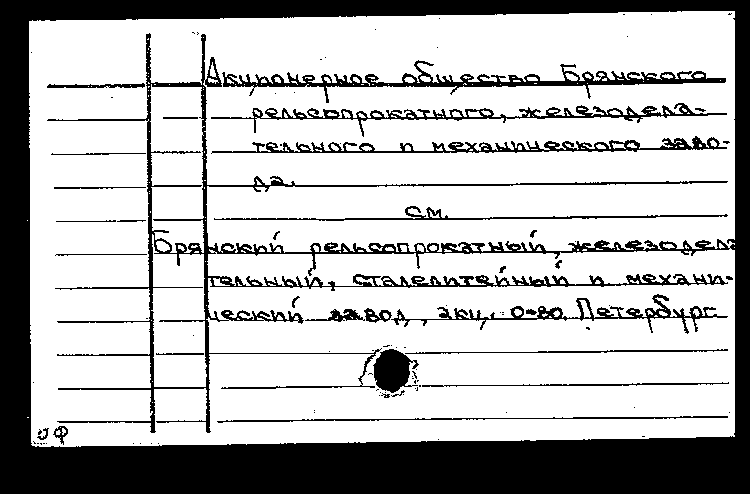 Акционерное общество Брянского
рельсопрокатного, железодела-
тельного и механического заво-
да.
см.
Брянский рельсопрокатный, железодела
тельный, сталелитейный и механи-
ческий завод, акц. о-во. Петербург.